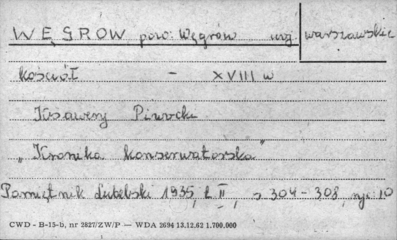 WĘGRÓW, pow. Węgrów woj. warszawskie
kościół - XVIII w
Ksawery Piwocki
"Kronika konserwatorska"
Pamiętnik Lubelski 1935, t. II, s 304-308, ryc 10
CWD - B-15-b, nr 2827/ZW/P — WDA 2694 13.12.62 1.700.000